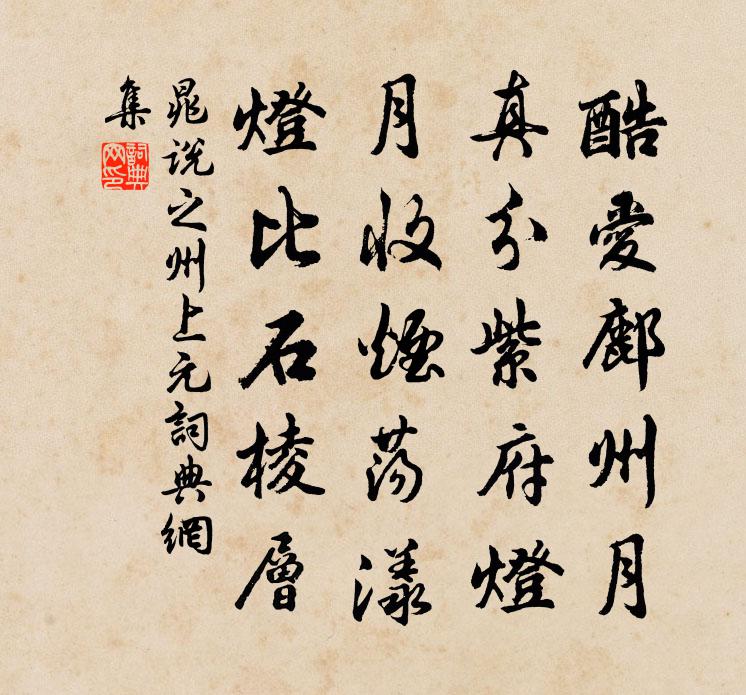 酷愛鄜州月
真分紫府燈
月收煙蕩漾
燈比石棱層
晁說之州上元詞典網
集
詞典
網印